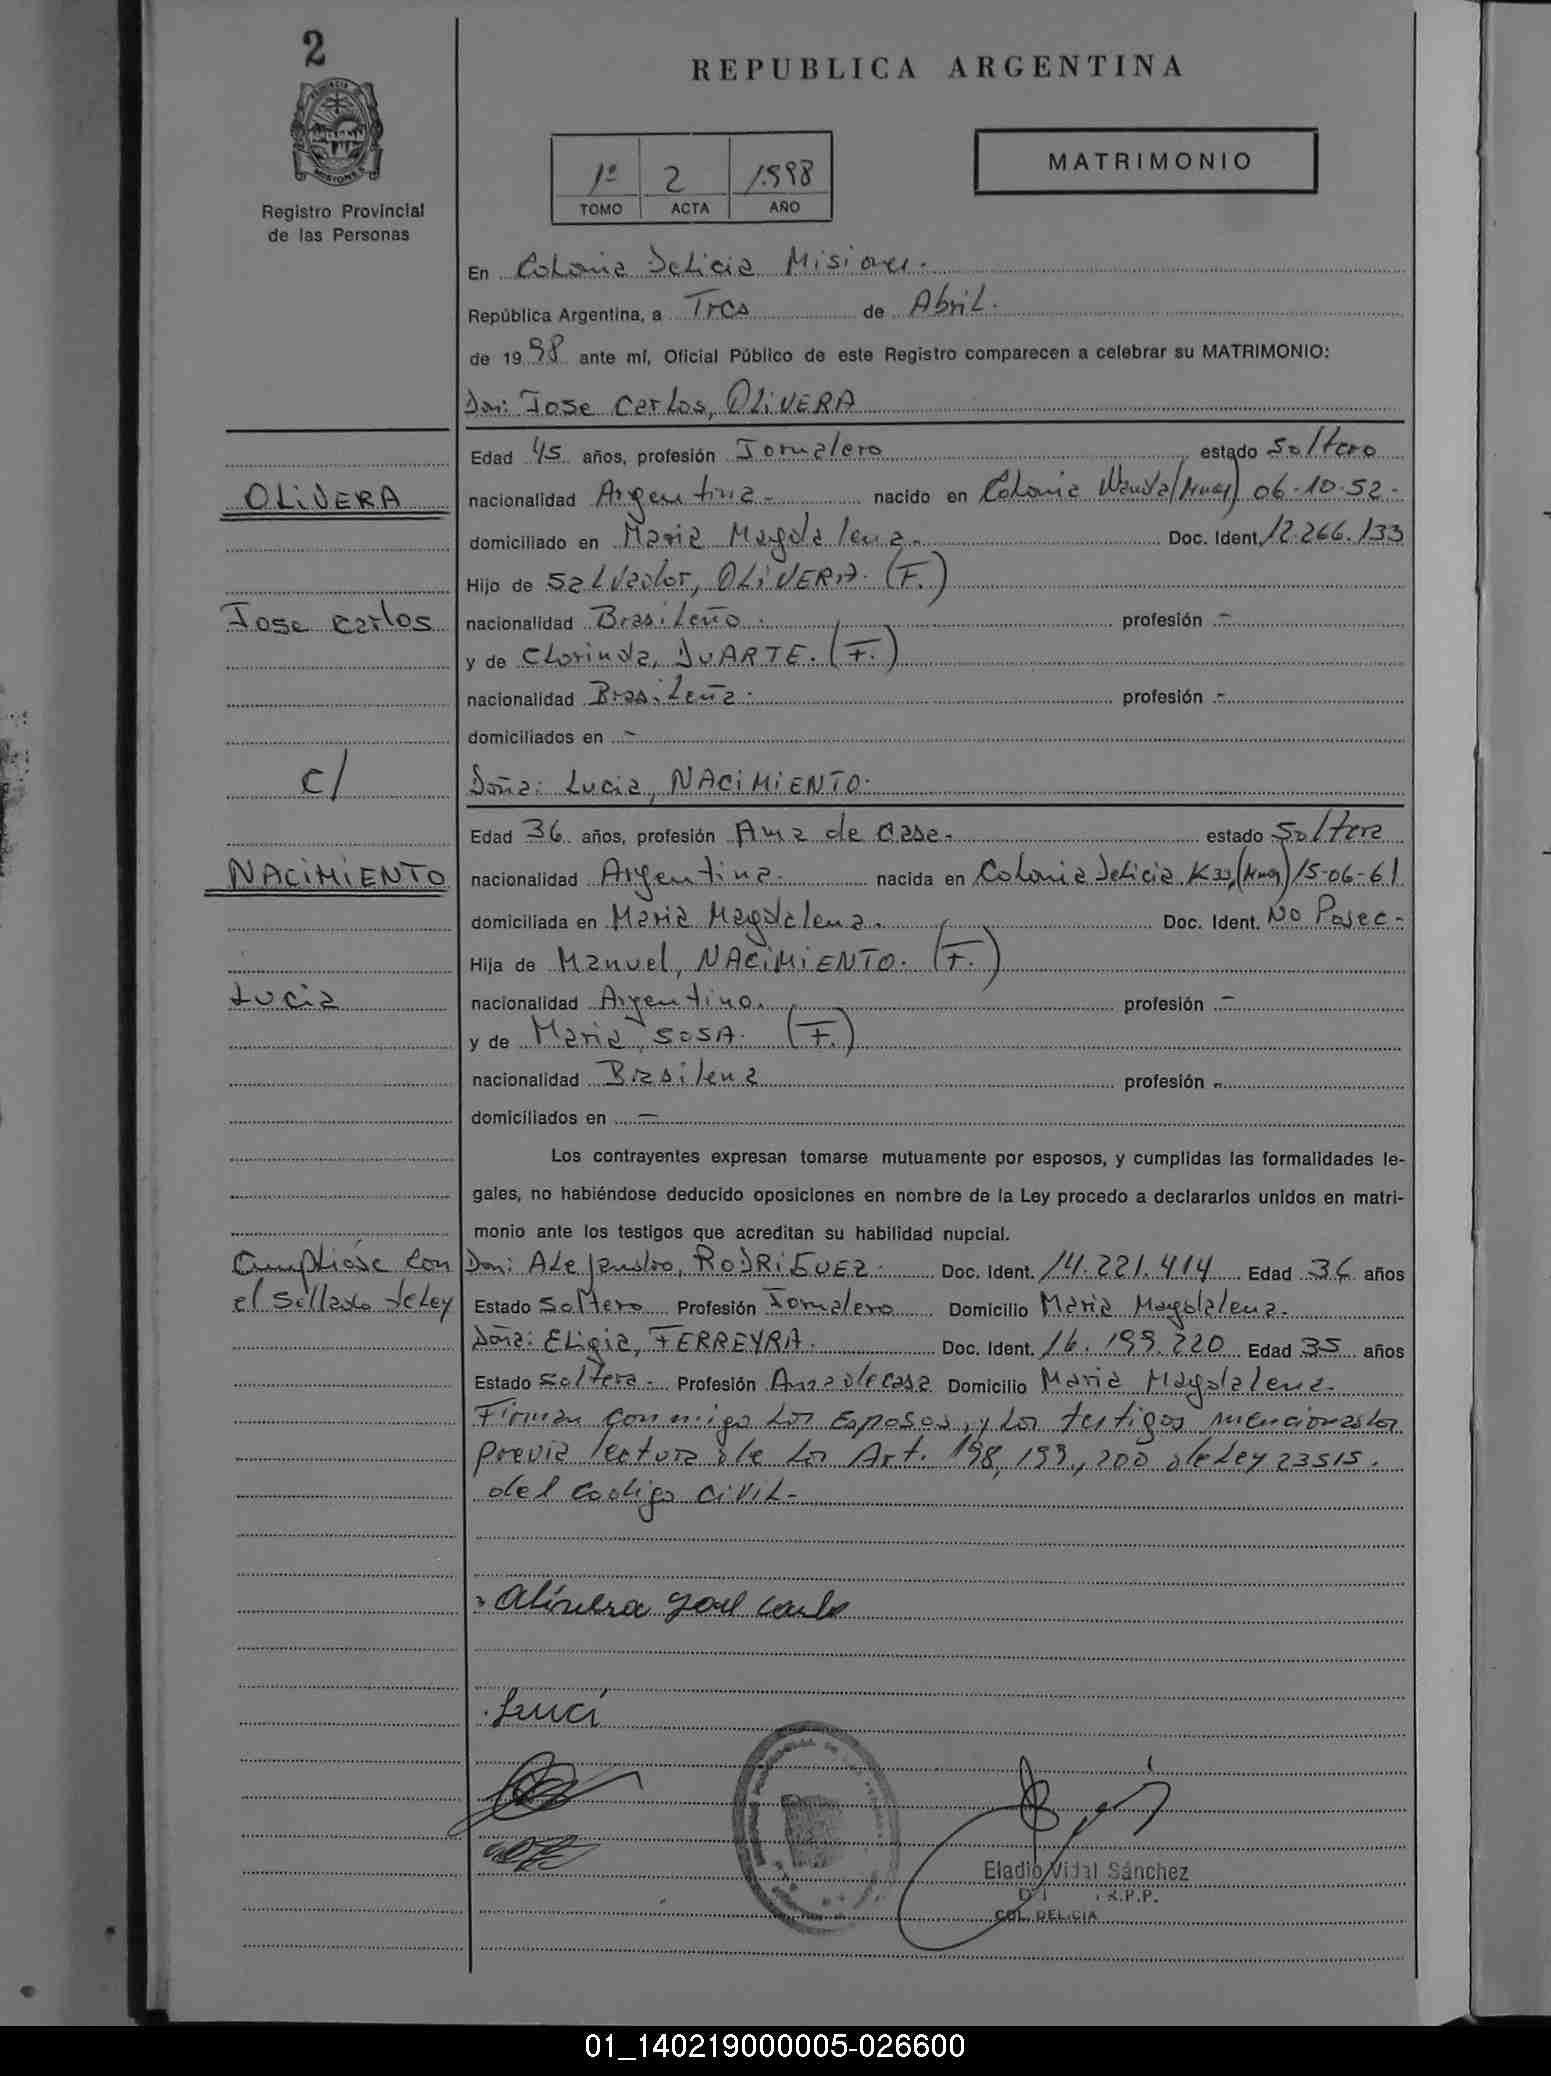 2
REPUBLICA ARGENTINA
MATRIMONIO
1º 2 1.998
TOMO ACTA AÑO
Registro Provincial
de las Personas
En Colonia Delicia Misiones.
República Argentina, a Tres de Abril.
de 1998 ante mí, Oficial Público de este Registro comparecen a celebrar su MATRIMONIO:
Don: Jose Carlos, OLiVERA
Edad 45 años, profesión Jornalero estado Soltero
OLiVERA
nacionalidad Argentina - nacido en Colonia Wanda (Mnes) 06-10-52-
domiciliado en Maria Magdalena - Doc. Ident. 12.266.133
Hijo de Salvador, OLiVERA. (F.)
Jose Carlos
nacionalidad Brasileño. profesión -
y de Clorinda, DUARTE. (F.)
nacionalidad Brasileña. profesión -
domiciliados en -
c/
Doña: Lucia, NACiMiENTO.
Edad 36 años, profesión Ama de Casa - estado Soltera
NACiMiENTO
nacionalidad Argentina. nacida en Colonia Delicia K33, (Mnes) 15-06-61
domiciliada en Maria Magdalena. Doc. Ident. No Posee-
Hija de Manuel, NACiMiENTO. (F.)
Lucia
nacionalidad Argentino. profesión -
y de Maria, SOSA. (F.)
nacionalidad Brasilena profesión -
domiciliados en -
Los contrayentes expresan tomarse mutuamente por esposos, y cumplidas las formalidades le-
gales, no habiéndose deducido oposiciones en nombre de la Ley procedo a declararlos unidos en matri-
monio ante los testigos que acreditan su habilidad nupcial.
Cumpliose con
el Sellado de Ley
Don: Alejandro, RODRiGUEZ. Doc. Ident. 14.221.414 Edad 36 años
Estado Soltero Profesión Jornalero Domicilio Maria Magdalena.
Doña: Eligia, FERREYRA. Doc. Ident. 16.199.220 Edad 35 años
Estado Soltera - Profesión Ama de casa Domicilio Maria Magdalena.
Firman conmigo Los Esposos, y Los testigos mencionados
previa lectura de Los Art. 198, 199, 200 de Ley 23515.
del Codigo CiViL-
Olivera José Carlo
Luci
Eladio Vidal Sánchez
R.P.P.
COL. DELICIA
01_140219000005-026600